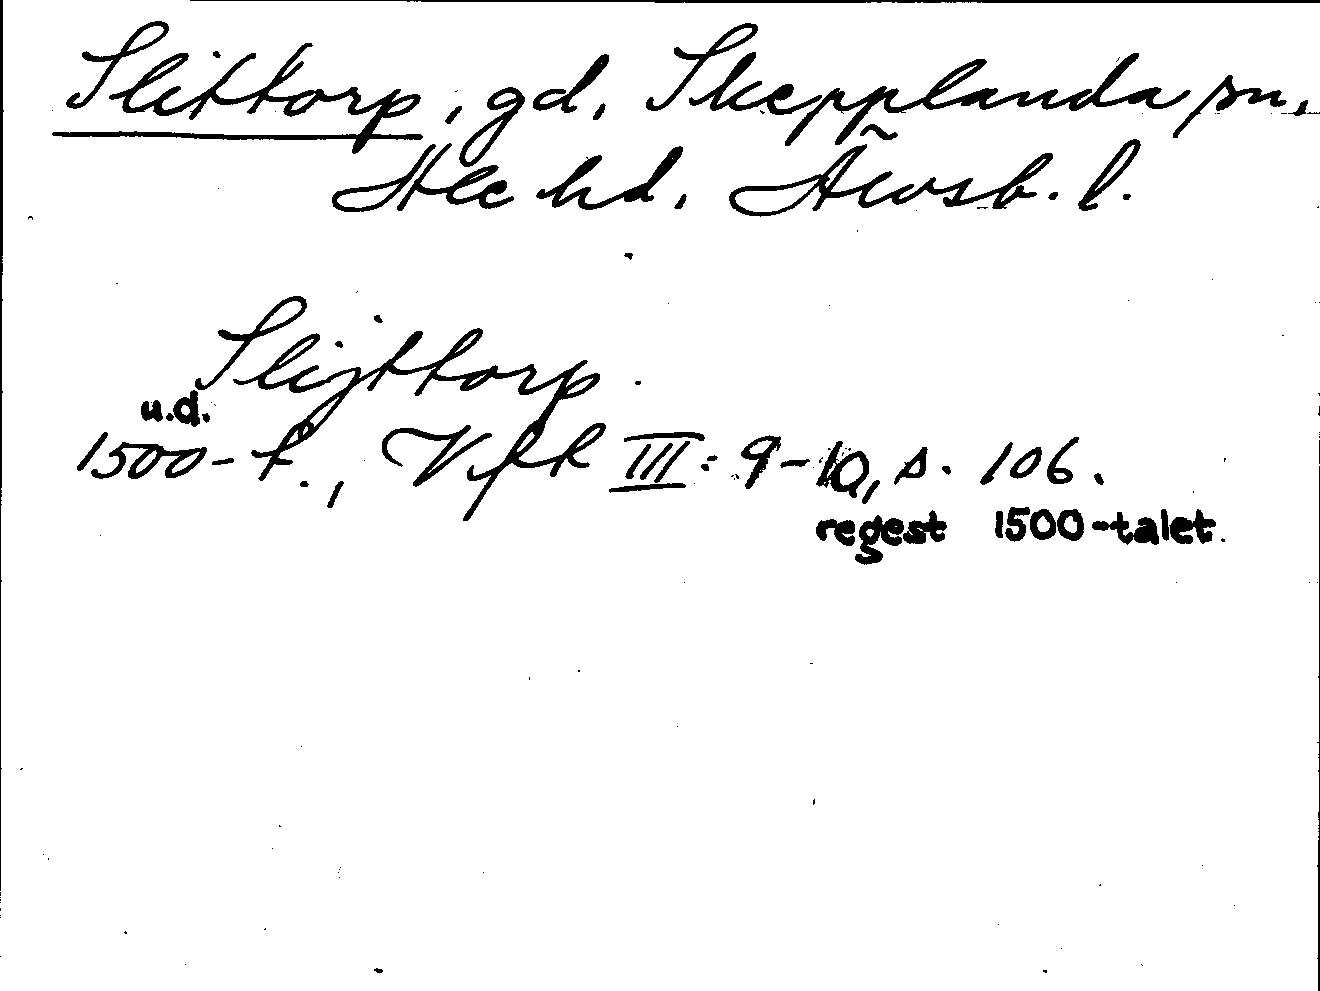 Slittorp, gd, Skepplanda sn,
Ale hd, Älvsb. l.
Slijttorp.
u.d.
1500-t., Vfk III: 9-10, s. 106.
regest 1500-talet.